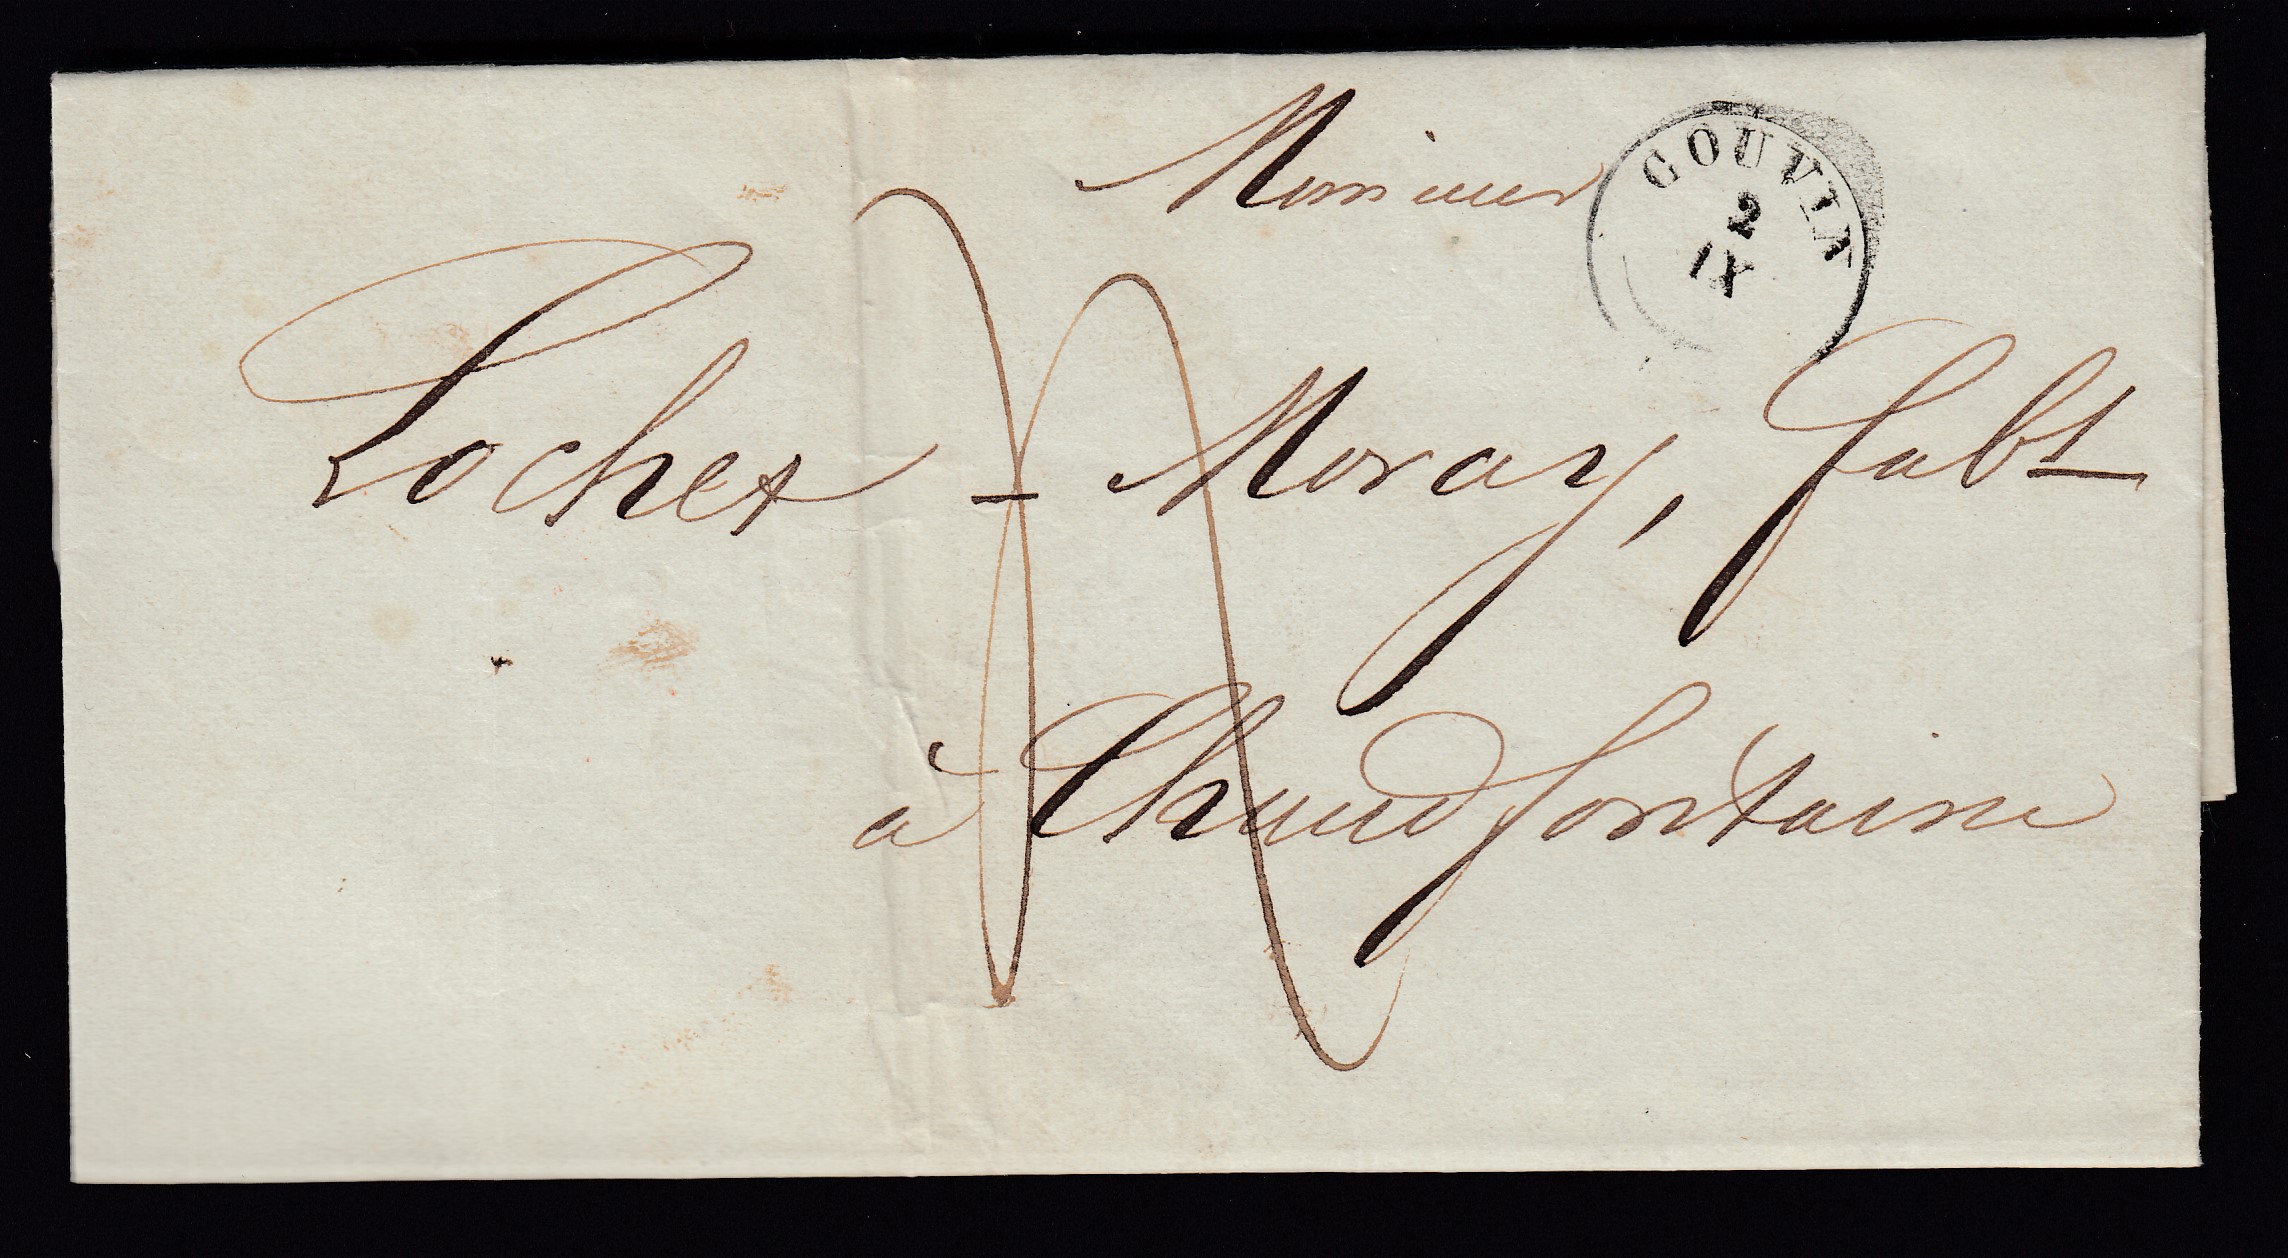 Monsieur
COUVIN
2
IX
Lochet - Moray, fabt
à Chaudfontaine